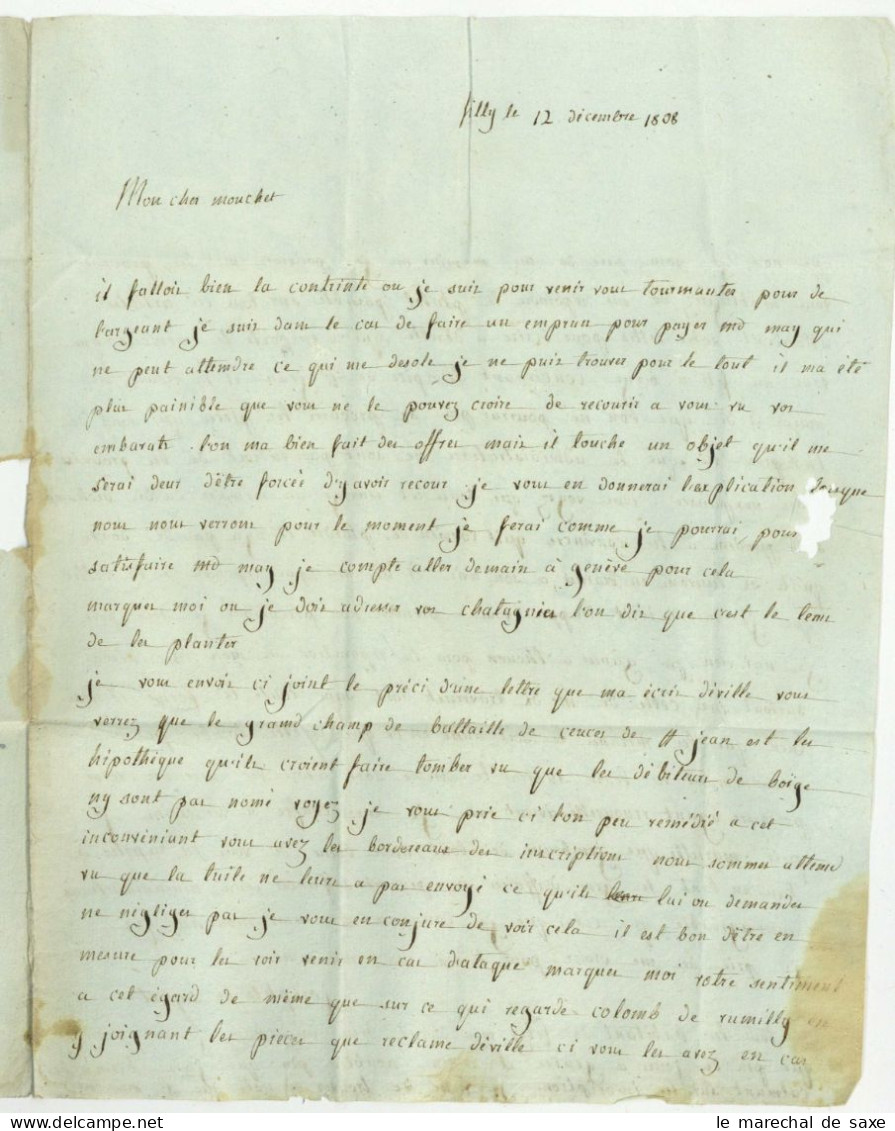 filly le 12 décembre 1808
Mon cher mouchet
il falloir bien la contrinte ou je suis pour venir vous tourmanter pour de
l'argeant je suis dans le cas de faire un emprun pour payer md may qui
ne peut attendre ce qui me desole je ne puis trouver pour le tout il ma été
plus painible que vous ne le pouvez croire de recourir a vous vu vos
embarats l'on ma bien fait des offres mais il touche un objet qu'il me
serai deur d'être forcée d'y avoir recour je vous en donnerai l'explication
nous nous verrons pour le moment je ferai comme je pourrai pour
satisfaire md may je compte aller demain à genève pour cela
marques moi ou je dois adresser vos chatagnier l'on dis que c'est le tems
de les planter
je vous envois ci joint le préci d'une lettre que ma écris déville vous
verrez que le grand champ de battaille de ceuces de St jean est les
hipothèque qu'ils croient faire tomber vu que les débiteurs de boige
ny sont pas nomé voyez je vous prie ci l'on peu remédié a cet
inconvéniant vous avez les bordereaux des inscriptions nous sommes attems
vu que la tuile ne leurs a pas envoyé ce qu'ils lui on demander
ne négliger pas je vous en conjure de voir cela il est bon d'être en
mesure pour les voir venir en cas d'ataque marques moi votre sentiment
a cet égard de même que sur ce qui regarde colomb de rumilly en
y joignant les pieces que reclame déville ci vous les avez en cas
le marechal de saxe